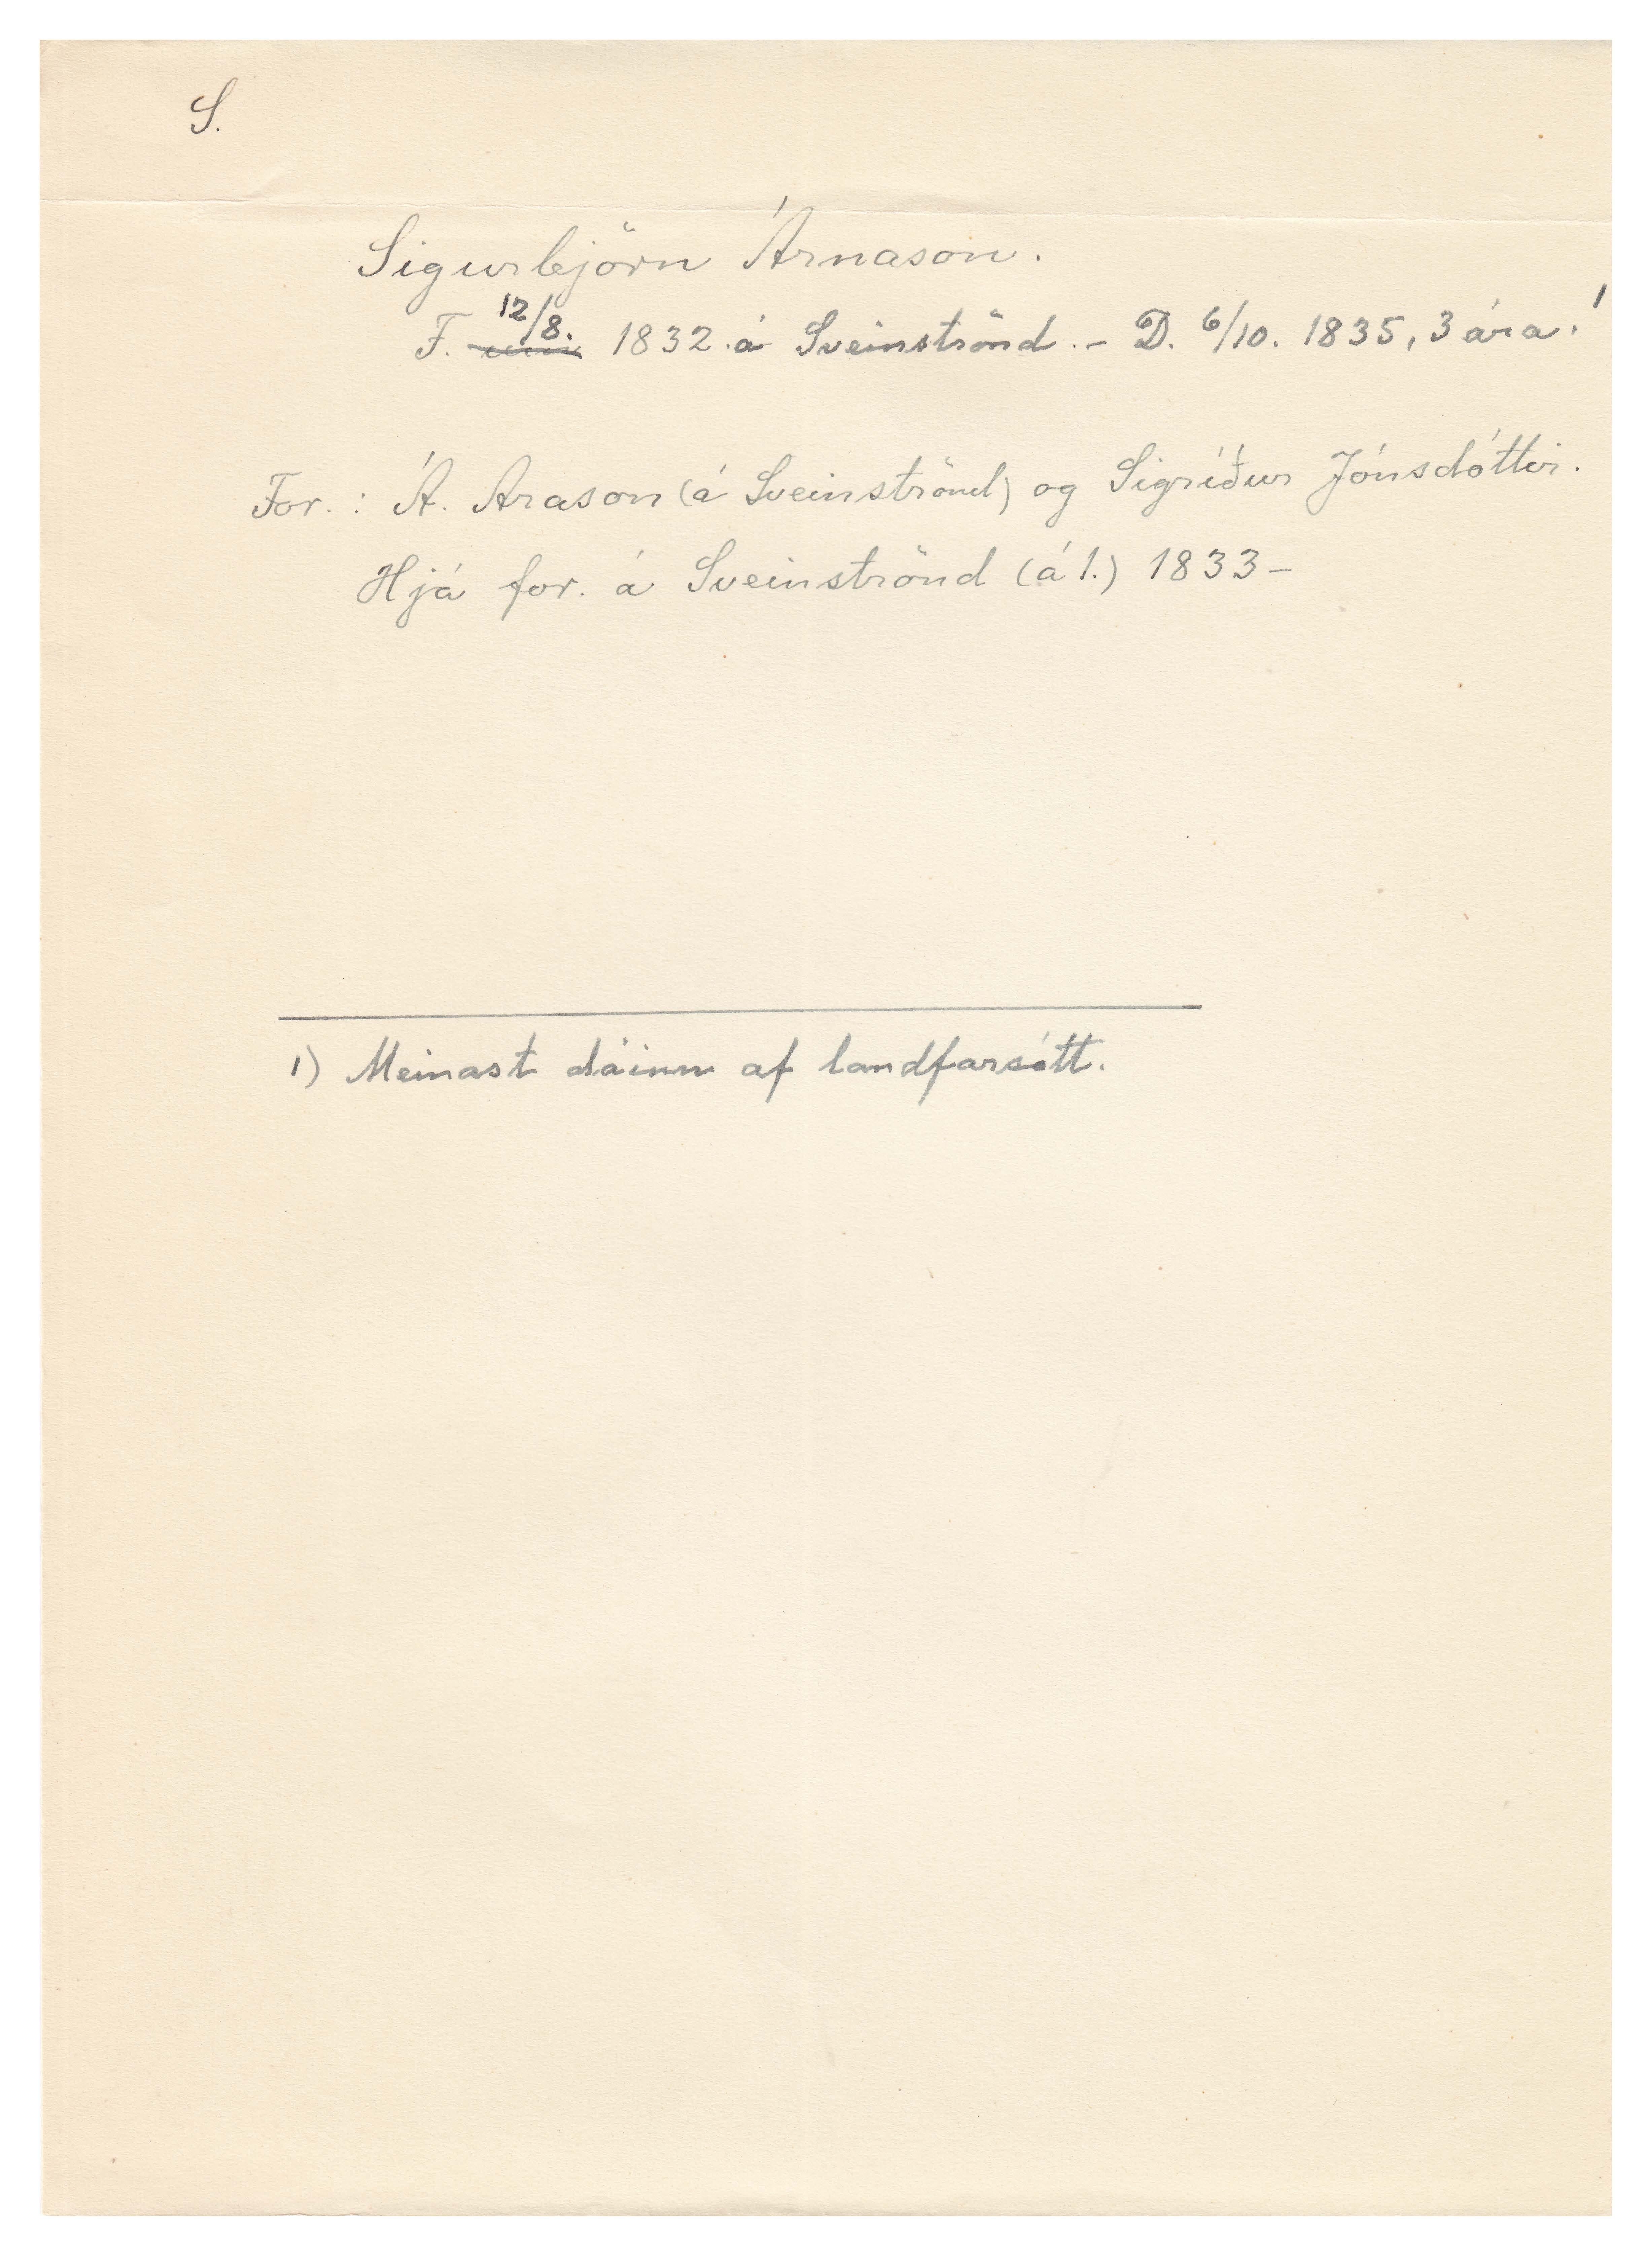 S.
Sigurbjörn Árnason.
F. 12/8. 1832 á Sveinströnd. - D. 6/10. 1835, 3 ára.¹
For.: Á. Arason (á Sveinströnd) og Sigríður Jónsdóttir.
Hjá for. á Sveinströnd (á 1.) 1833-
1) Meinast dáinn af landfarsótt.